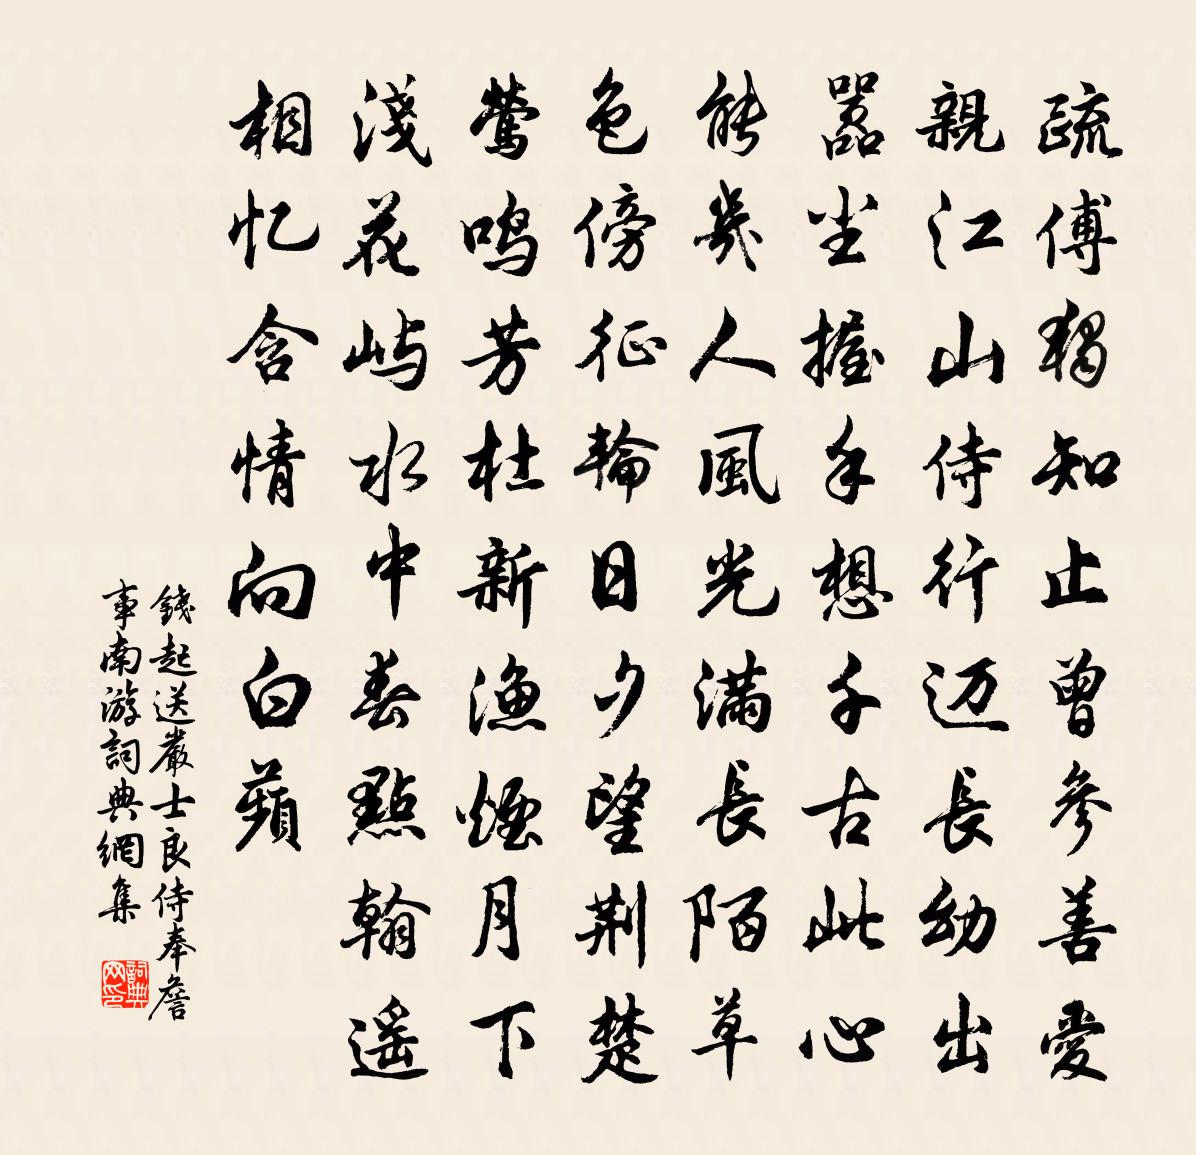 疏傅獨知止曾參善愛
親江山侍行迈長幼出
嚣尘握手想千古此心
能幾人風光滿長陌草
色傍征輪日夕望荆楚
鶯鸣芳杜新漁煙月下
淺花屿水中春點翰遥
相忆含情向白蘋
錢起送嚴士良侍奉詹
事南游詞典網集
詞典网印